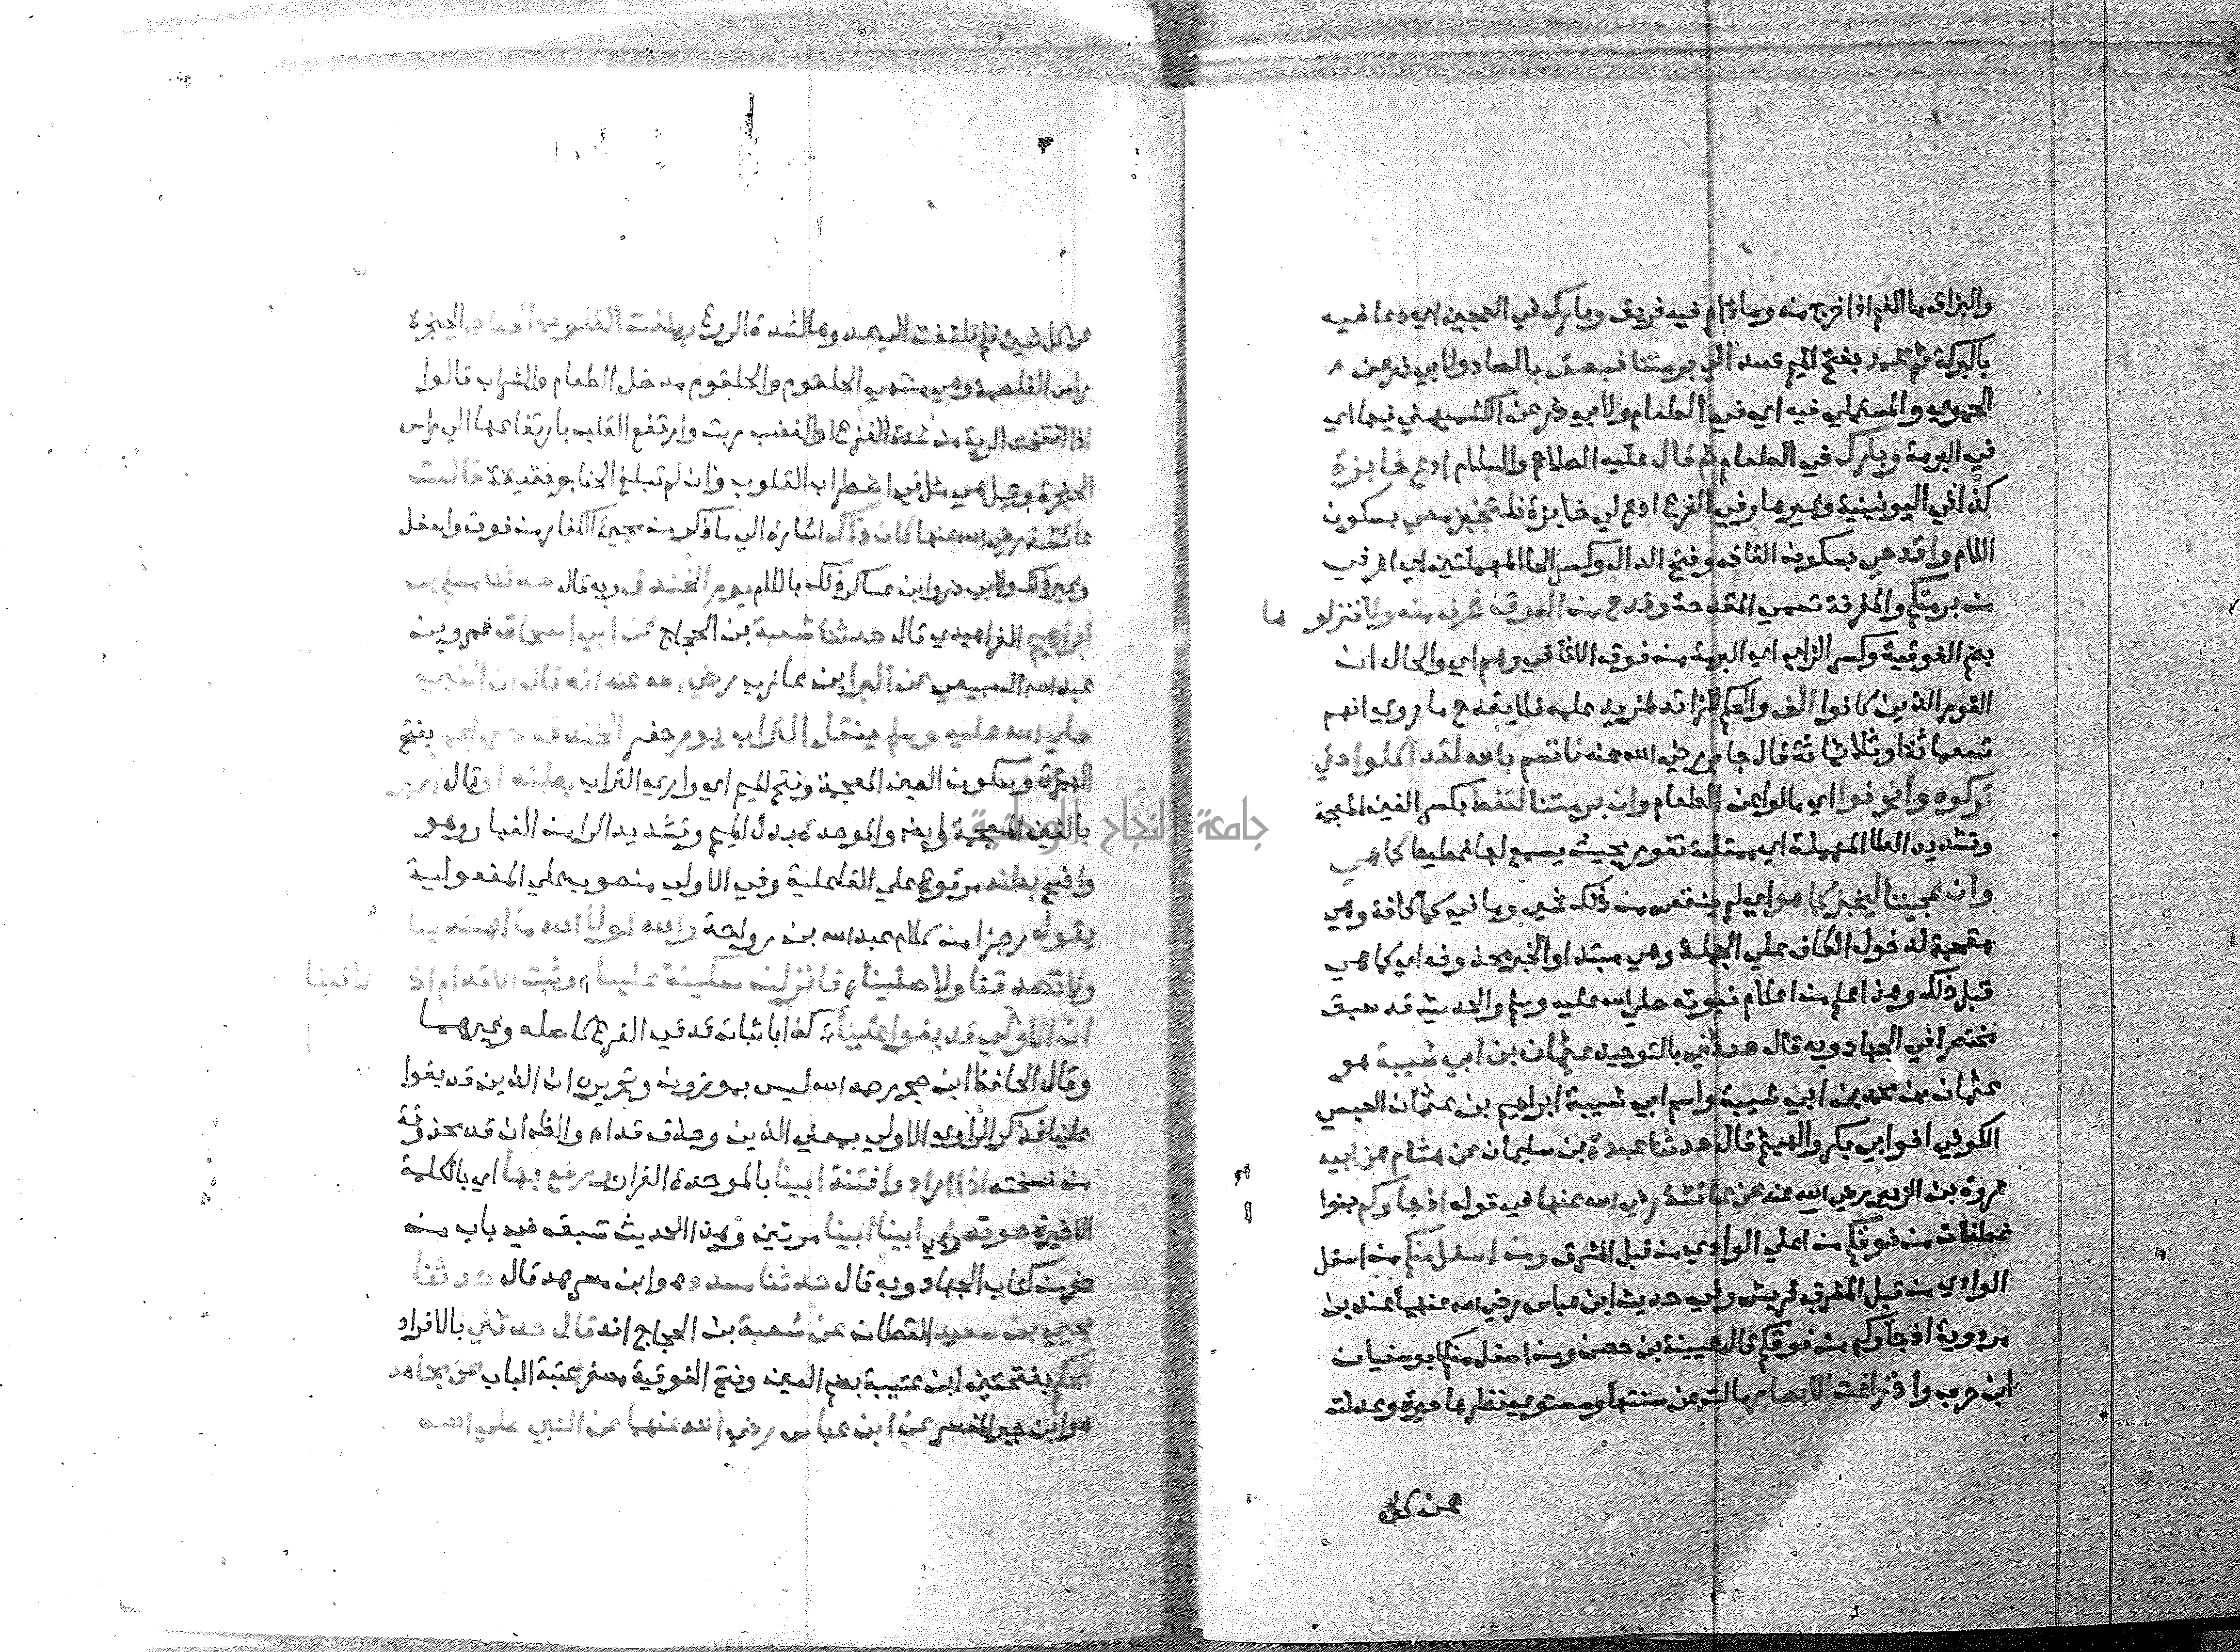 والبزاق ما الفم اذا خرج منه وما دام فيه فريق وبارك في العجين اي دعا فيه
بالبركة ثم عمد بفتح الميم قصد الي برمتنا فبصق بالصاد ولابي ذر عن
الحموي والمستملي فيه اي في الطعام ولابي ذر عن الكشميهني فيها اي
في البرمة وبارك في الطعام ثم قال عليه الصلاة والسلام ادع خابزة
كذا في اليونينية وغيرها وفي الفرع ادع لي خابزة فلتخبز معي بسكون
اللام واقدحي بسكون القاف وفتح الدال وكسر الحا المهملتين اي اغرفي
من برمتكم والمغرفة تسمي المقدحة وقدح من المرق غرف منه ولا تنزلوها
بضم الفوقية وكسر الزاي اي البرمة من فوق الاثافي وهم اي والحال ان
القوم الذين كانوا الف والحكم للزائد لمزيد علمه فلا يقدح ما روي انهم
تسعماية او ثلاثماية قال جابر رضي الله عنه فاقسم بالله لقد اكلوا حتي
تركوه وانحرفوا اي مالوا عن الطعام وان برمتنا لتغط بكسر الغين المعجمة
وتشديد الطا المهملة اي ممتلية تفور بحيث يسمع لها غطيط كما هي
وان عجيننا ليخبز كما هو اي لم ينقص من ذلك شي وما في كما كافة وهي
مقحمة لدخول الكاف علي الجملة وهي مبتدا والخبر محذوف اي كما هي
قبل ذلك وهذا علم من اعلام نبوته صلي الله عليه وسلم والحديث قد سبق
مختصرا في الجهاد وبه قال حدثني بالتوحيد عثمان بن ابي شيبة هو
عثمان بن محمد بن ابي شيبة واسم ابي شيبة ابراهيم بن عثمان العبسي
الكوفي اخو ابي بكر والقسم قال حدثنا عبدة بن سليمان عن هشام عن ابيه
عروة بن الزبير رضي الله عنه عن عائشة رضي الله عنها في قوله اذ جاوكم بنوا
غطفان من فوقكم من اعلي الوادي من قبل المشرق ومن اسفل منكم من اسفل
الوادي من قبل المغرب قريش وفي حديث ابن عباس رضي الله عنهما عند بن
مردوية اذ جاوكم من فوقكم قال عيينة بن حصن ومن اسفل منكم ابو سفيان
ابن حرب واذ زاغت الابصار مالت عن سننها ومستوي نظرها حيرة وعدلت
عن كل
عن كل شي فلم تلتفت الي عدوها لشدة الروع وبلغت القلوب الحناجر الحنجرة
راس الغلصمة وهي منتهي الحلقوم والحلقوم مدخل الطعام والشراب قالوا
اذا انتفخت الرية من شدة الفزع او الغضب ربت وارتفع القلب بارتفاعها الي راس
الحنجرة وقيل هي مثل في اضطراب القلوب وان لم تبلغ الحناجر حقيقة قالت
عائشة رضي الله عنها كان ذاك اشارة الي ما ذكر من مجيئ الكفار من فوق واسفل
وغير ذلك ولابي ذر وابن عساكر ذلك باللام يوم الخندق وبه قال حدثنا مسلم بن
ابراهيم الفراهيدي قال حدثنا شعبة بن الحجاج عن ابي اسحاق عمرو بن
عبد الله السبيعي عن البرا بن عازب رضي الله عنه انه قال كان النبي
صلي الله عليه وسلم ينقل التراب يوم حفر الخندق حتي اغمر بفتح
الهمزة وسكون الغين المعجمة وفتح الميم اي واري التراب بطنه او قال اغبر
بالغين المعجمة ايضا والموحدة بدل الميم وتشديد الرا من الغبار وهو
واضح بطنه مرفوع علي الفاعلية وفي الاولي منصوب علي المفعولية
يقول رجزا من كلام عبد الله بن رواحة والله لولا الله ما اهتدينا
ولا تصدقنا ولا صلينا، فانزلن سكينة علينا، وثبت الاقدام ان لاقينا
ان الاولي قد بغوا علينا، كذا باثبات قد في الفرع كاصله وغيرهما
وقال الحافظ ابن حجر رحمه الله ليس بموزون وتحريره ان الذين قد بغوا
علينا فذكر الراوي الاولي بمعني الذين وحذف قد اه والظاهر ان قد محذوفة
من نسخته اذا ارادوا فتنة ابينا بالموحدة الفرار يرفع بها اي بالكلمة
الاخيرة صوته وهي ابينا ابينا مرتين وهذا الحديث سبق في باب من
حفر من كتاب الجهاد وبه قال حدثنا مسدد هو ابن مسرهد قال حدثنا
يحيي بن سعيد القطان عن شعبة بن الحجاج انه قال حدثني بالافراد
الحكم بفتحتين ابن عتيبة بضم العين وفتح الفوقية مصغر عتبة الباب عن مجاهد
هو ابن جبر المفسر عن ابن عباس رضي الله عنهما عن النبي صلي الله
جامعة النجاح الوطنية